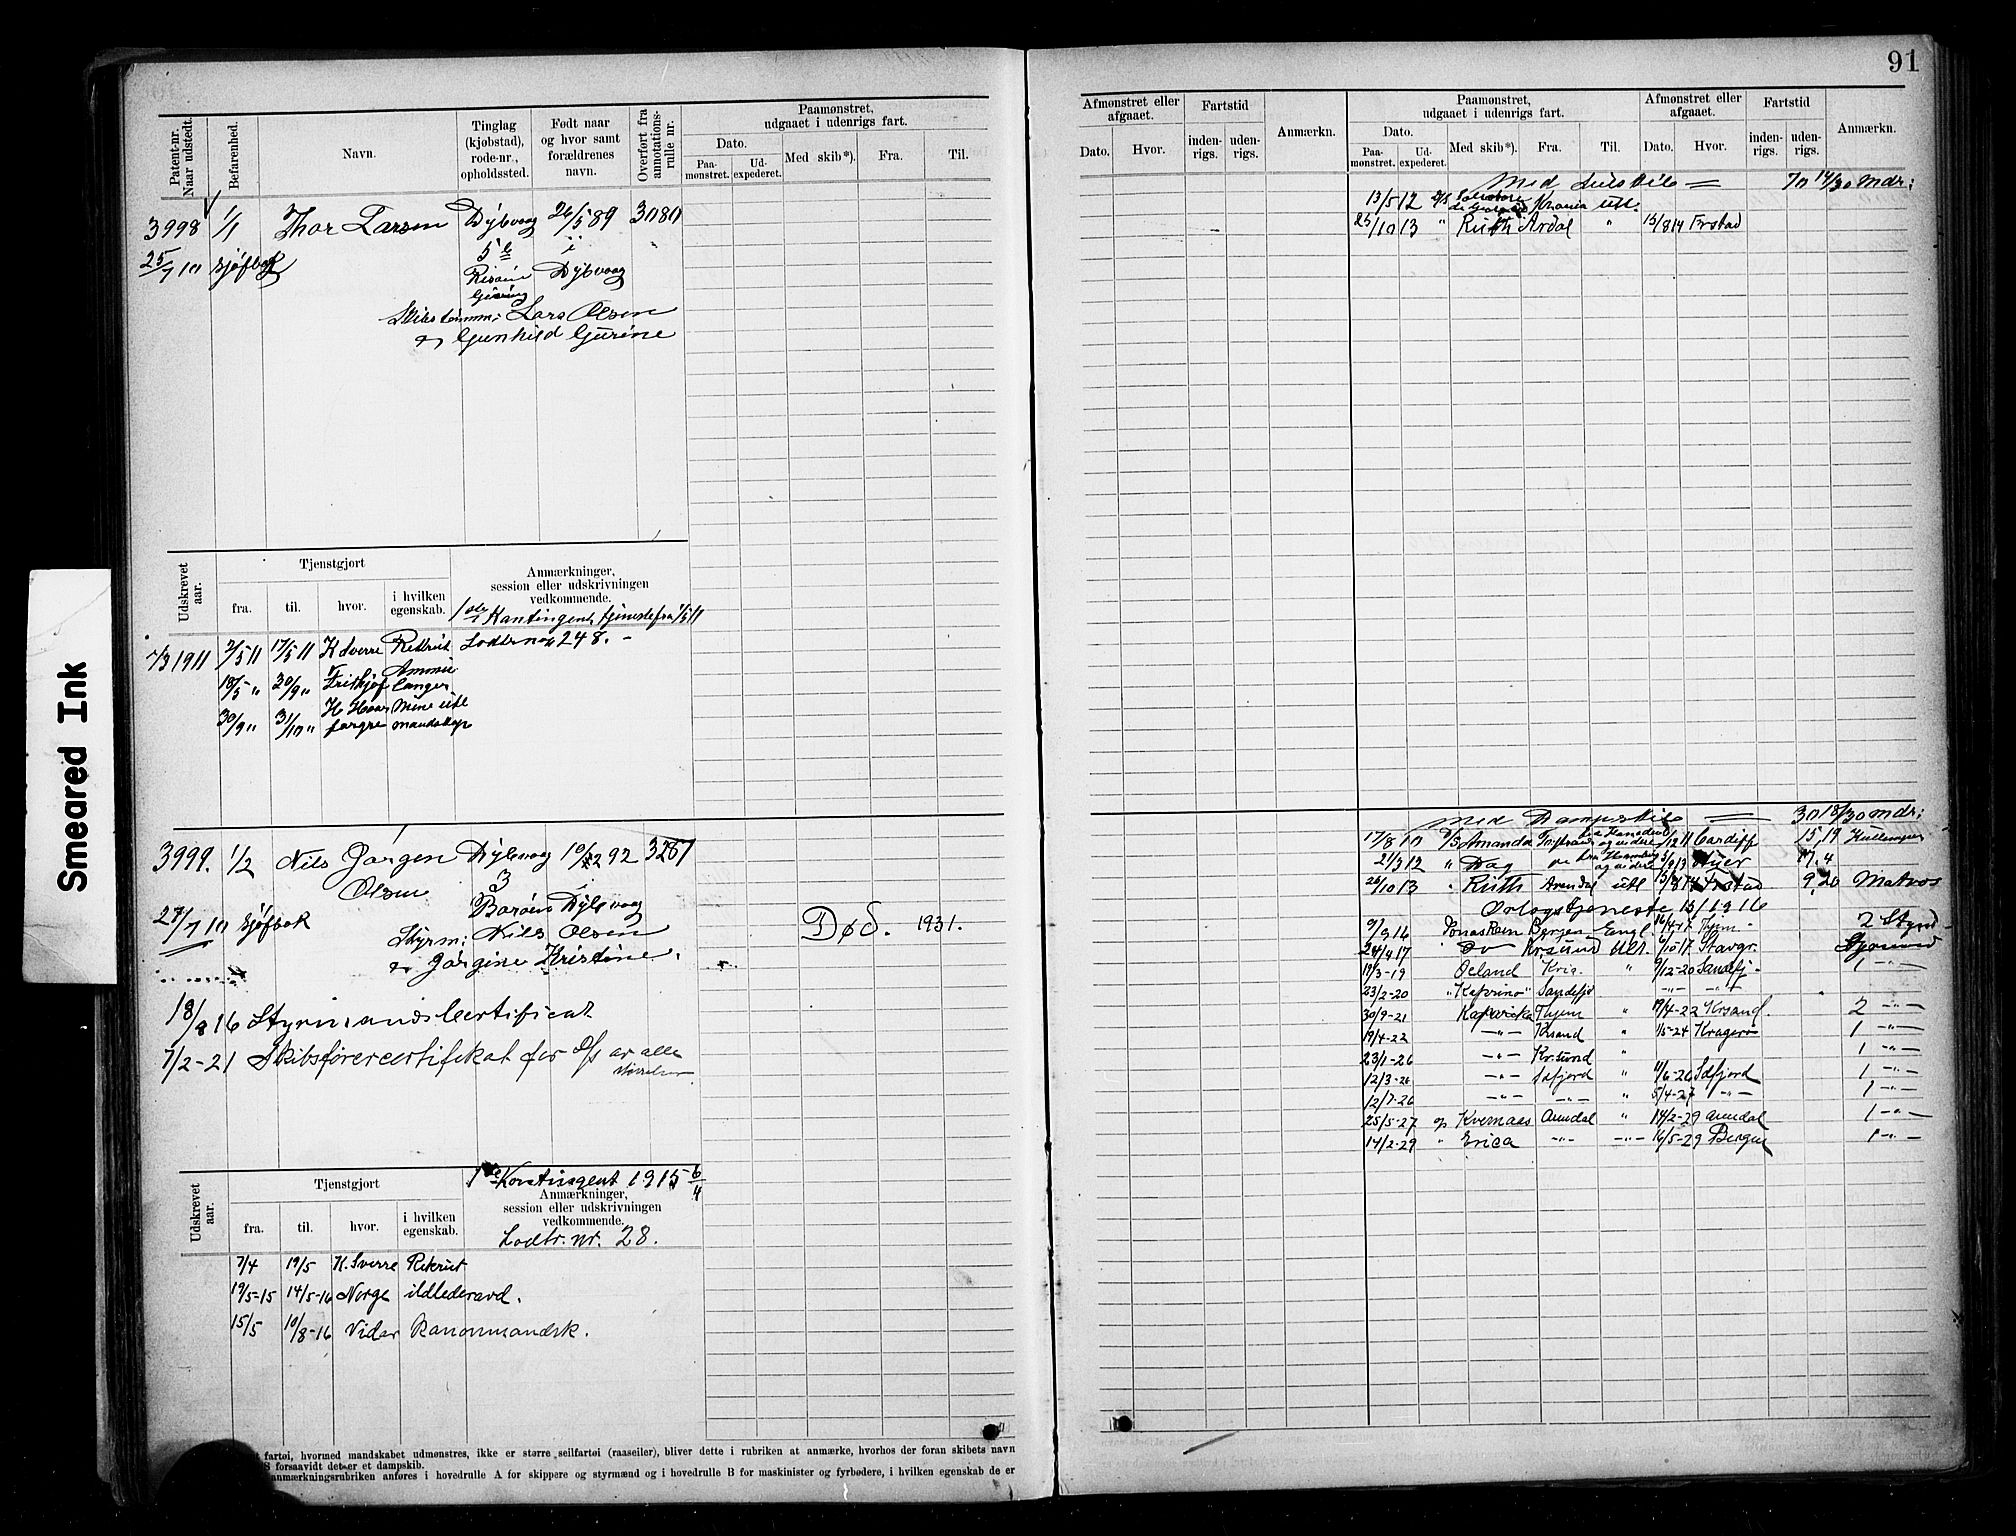 91
Smeared Ink
Patent-nr. Naar udstedt.
Befarenhed.
Navn.
Tinglag (kjøbstad), rode-nr., opholdssted.
Født naar og hvor samt forældrenes navn.
Overført fra annotations-rulle nr.
Paamønstret, udgaaet i udenrigs fart.
Dato.
Paa-mønstret.
Ud-expederet.
Med skib*).
Fra.
Til.
3998 1/1 Thor Larsen Dybvaag 26/5 89 3080
25/7 10 Sjøfbok 5 i
Risøen Dybvaag
Lars Olsen
og Gunhild Gurine
Udskrevet aar.
Tjenstgjort
fra.
til.
hvor.
i hvilken egenskab.
Anmærkninger, session eller udskrivningen vedkommende.
1ste Kontingents tjeneste fra 1/5 11
1/3 1911 2/5 11 17/5 11 K Sverre Rekrut Lodtr no 248. -
18/5 " 30/9 " Fritjof
30/9 " 31/10 " mandskap
3999. 1/2 Nils Jørgen Dybvaag 10/2 92 3267
Olsen 3 i
Barøen Dybvaag
27/7 10 Sjøfbok Styrm: Nils Olsen
og Jørgine Kristine.
Død. 1931.
18/8 16 Styrmandscertificat
7/2-21 Skibsførercertifikat for D/S av alle størrelser
Udskrevet aar.
Tjenstgjort
fra.
til.
hvor.
i hvilken egenskab.
1ste Kontingent 1915 6/4
Anmærkninger, session eller udskrivningen vedkommende.
Lodtr. nr. 28.
7/4 19/5 K. Sverre Rekrut
19/5-15 14/5-16 Norge ildlederavd.
15/5 10/8-16 Vidar Kanonmandsk.
fartøi, hvormed mandskabet udmønstres, ikke er større seilfartøi (raaseiler), bliver dette i rubriken at anmærke, hvorhos der foran skibets navn
S forsaavidt det er et dampskib.
anmærkningsrubriken anføres i hovedrulle A for skippere og styrmænd og i hovedrulle B for maskinister og fyrbødere, i hvilken egenskab de er
Afmønstret eller afgaaet.
Dato.
Hvor.
Fartstid
inden-rigs.
uden-rigs.
Anmærkn.
Paamønstret, udgaaet i udenrigs fart.
Dato.
Paa-mønstret.
Ud-expederet.
Med skib*).
Fra.
Til.
Afmønstret eller afgaaet.
Dato.
Hvor.
Fartstid
inden-rigs.
uden-rigs.
Anmærkn.
Med Seilskib = 70 14/30 mdr:
13/5 12 Kra utl.
25/10 13 " Ruth Ardal " 15/8 14 Frstad
Med Dampskib = 30 18/30 mdr:
17/8 10 D/S Amanda Cardiff 15, 19
21/3 12 " Dag 17. 4
25/10 13 " Ruth Arendal utl Frstad 9. 20 Matros
Orlogstjeneste 15/1916
Bergen Engl 16/4 17 Tjem - 2 Styrd
24/4 17 Do Krsund Utl. 6/10 17 Stavgr.
19/3-19 Oeland Kria. " 9/12-20 Sandefj - 1 - " -
23/2-20 Sandefjd - " - - " -
30/9-21 Tjem " 17/4-22 Krsand. 2 - " -
19/4-22 - " - Krsand " 1/5-24 Kragerø 1 - " -
23/1-26 - " - Kr.sund " 1 - " -
12/3-26 - " - Sdfjord " 11/6-26 Sdfjord 1 - " -
12/7-26 - " - - " - " 5/4-27 - " - 1 - " -
25/5-27 Kvernaas Arendal " 14/2-29 Arendal 1 - " -
14/2-29 " Erica - " - - " - 16/5-29 Bergen 1 - " -